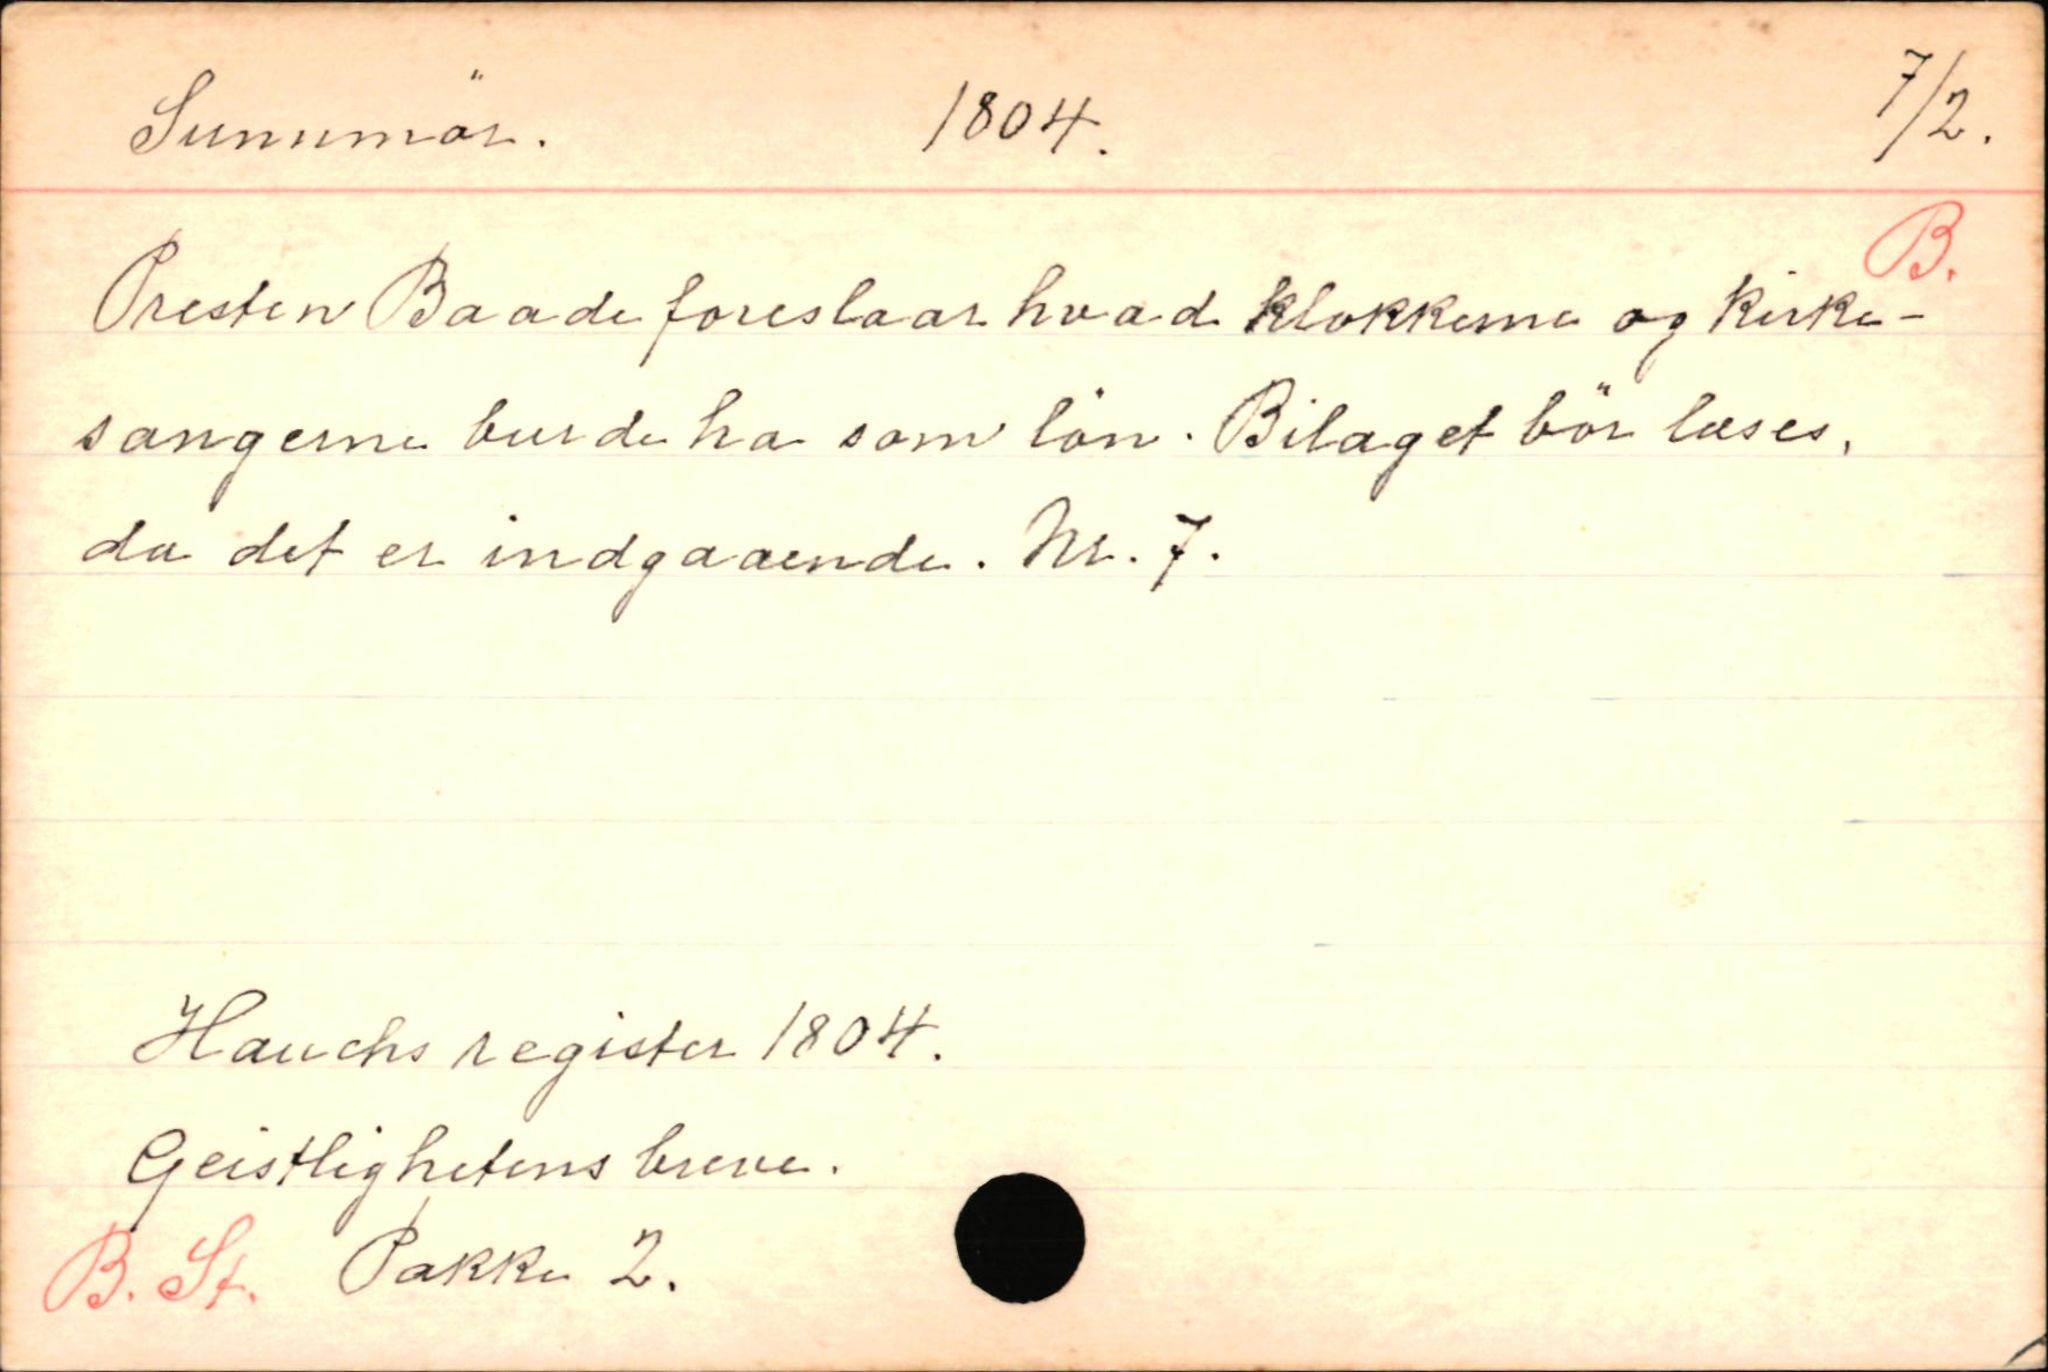 Sunnmör. 1804. 7/2.
B.
Presten Baade foreslaar hvad klokkerne og kirke-
sangerne burde ha som lön. Bilaget bör læses,
da det er indgaaende. Nr. 7.
Hauchs register 1804.
Geistlighetens breve.
B. St. Pakke 2.